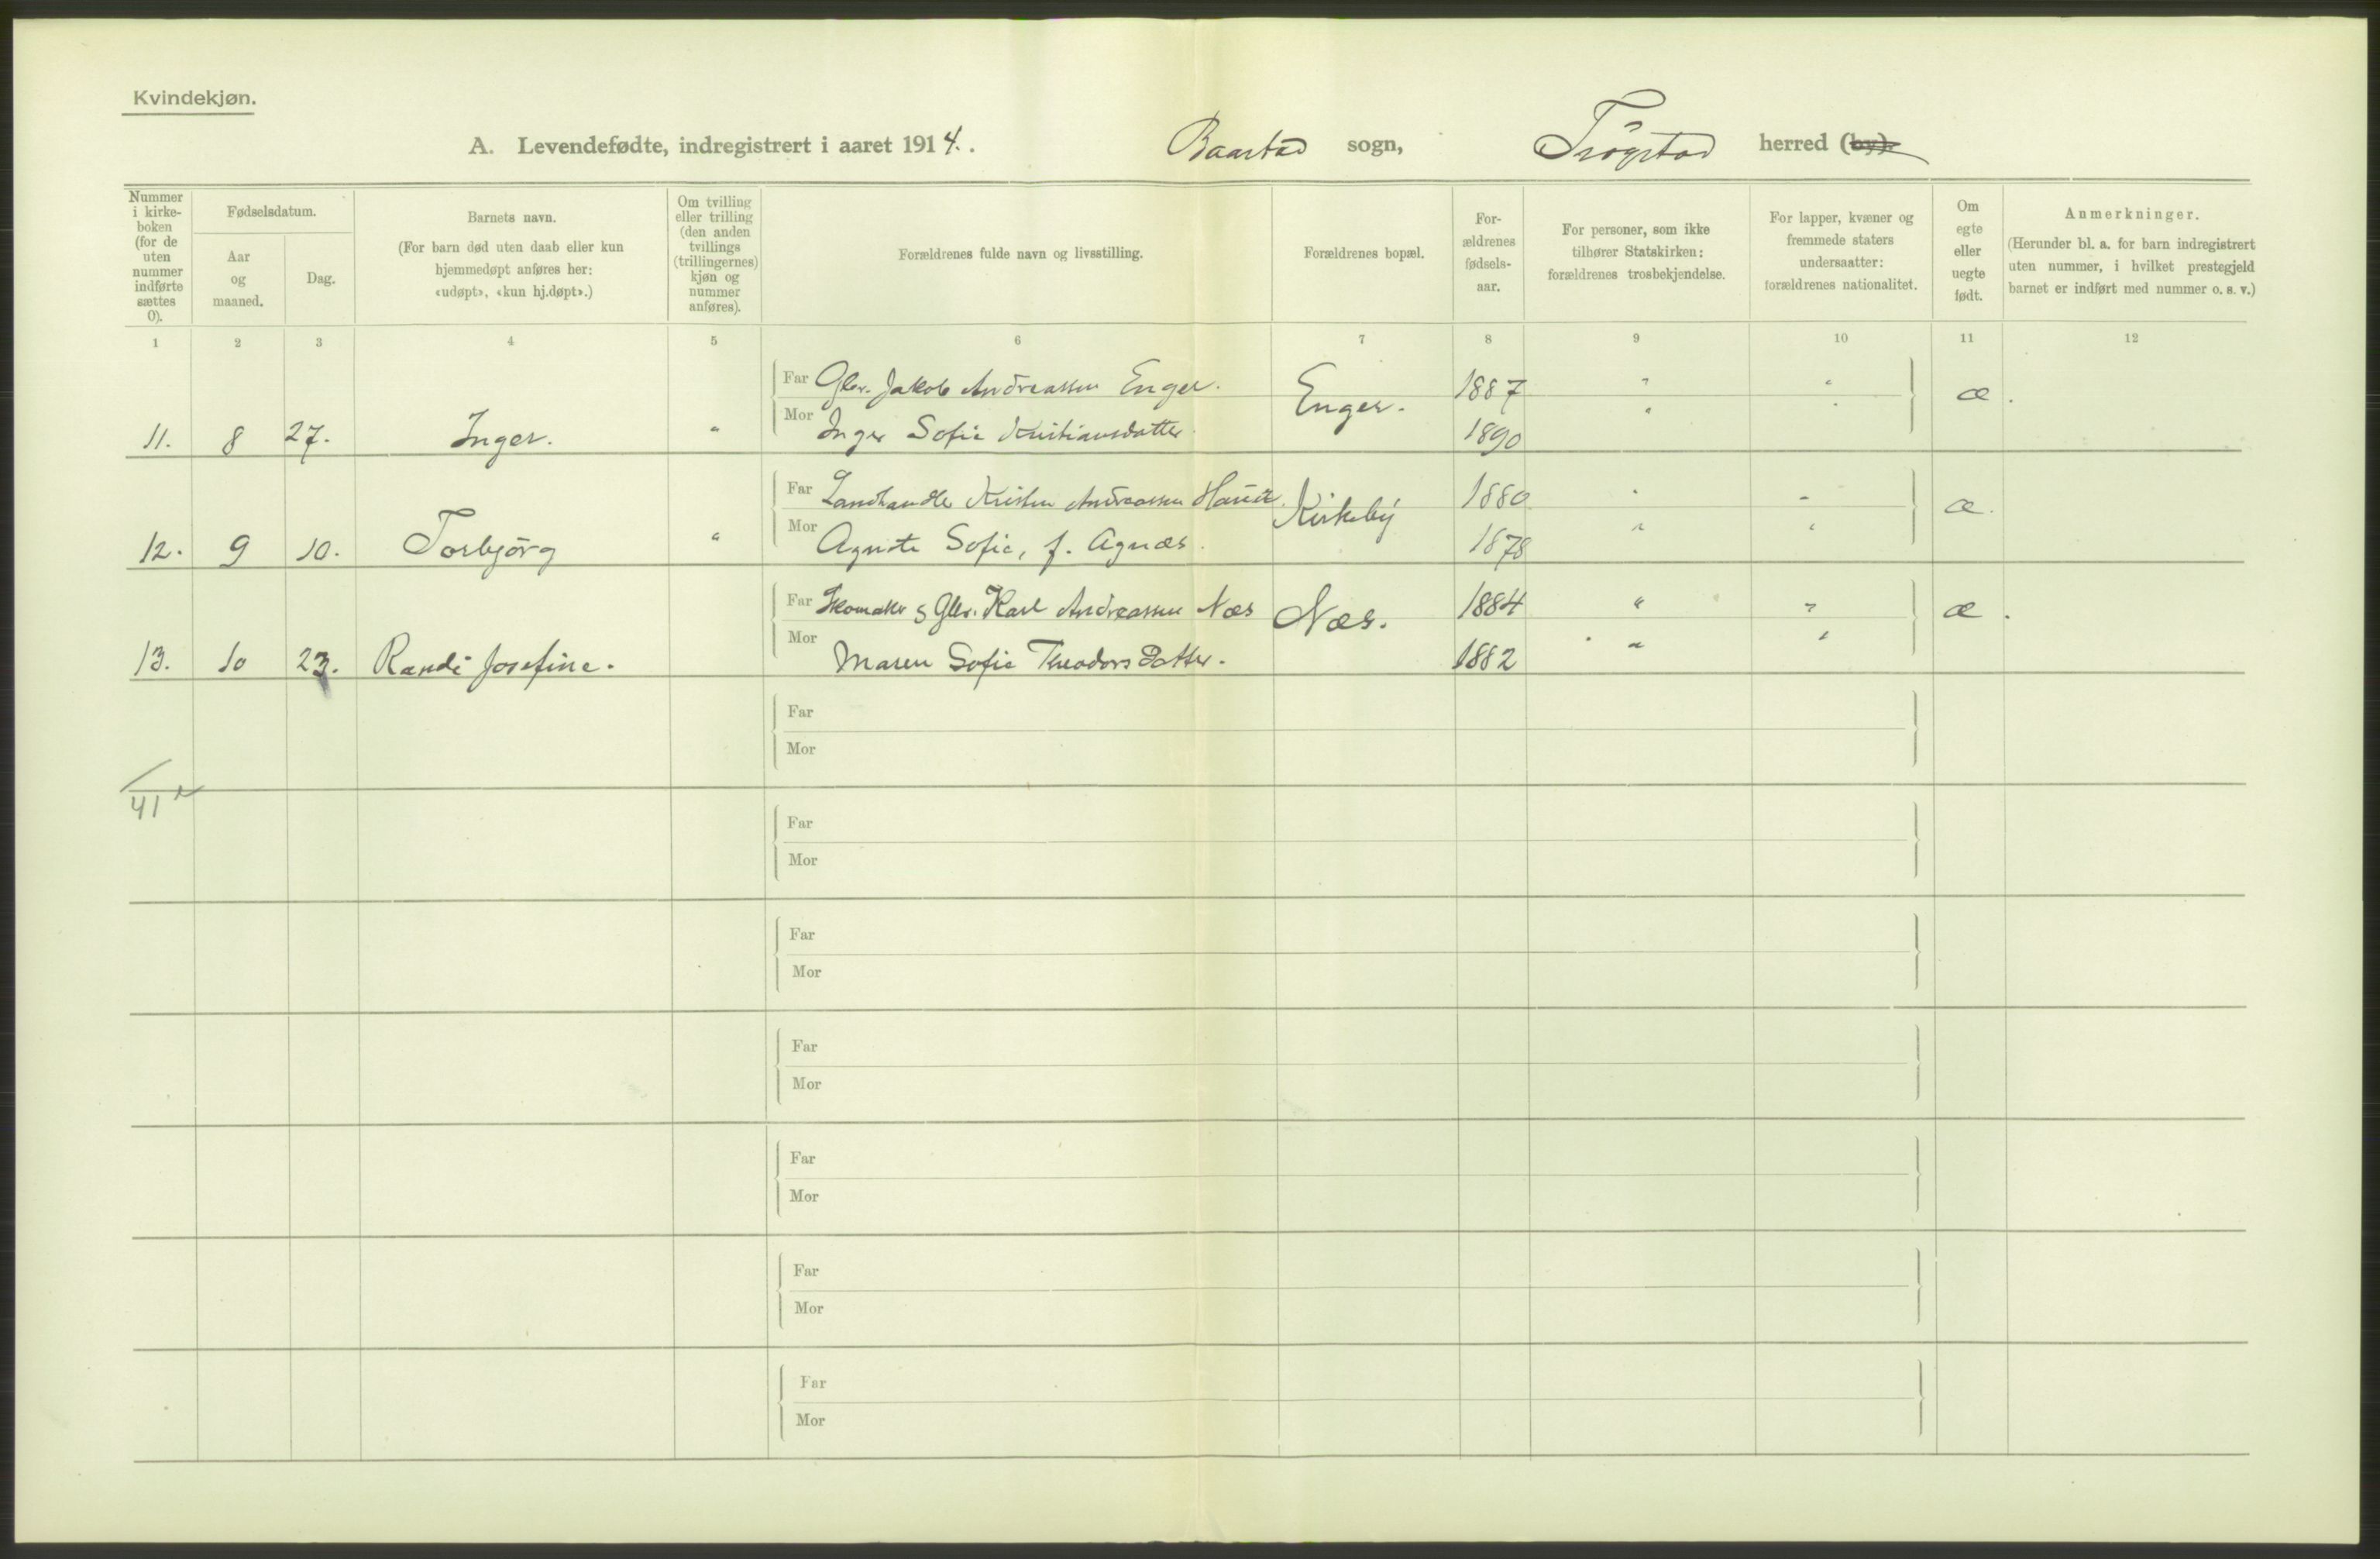 Kvindekjøn.
A. Levendefødte, indregistrert i aaret 1914. Baastad sogn, Trögstad herred (by).
Nummer i kirke-boken (for de uten nummer indførte sættes 0).
Fødselsdatum.
Aar og maaned.
Dag.
Barnets navn.
(For barn død uten daab eller kun hjemmedøpt anføres her: «udøpt», «kun hj.døpt».)
Om tvilling eller trilling (den anden tvillings (trillingernes) kjøn og nummer anføres).
Forældrenes fulde navn og livsstilling.
Forældrenes bopæl.
For-ældrenes fødsels-aar.
For personer, som ikke tilhører Statskirken: forældrenes trosbekjendelse.
For lapper, kvæner og fremmede staters undersaatter: forældrenes nationalitet.
Om egte eller uegte født.
Anmerkninger.
(Herunder bl. a. for barn indregistrert uten nummer, i hvilket prestegjeld barnet er indført med nummer o. s. v.)
1 2 3 4 5 6 7 8 9 10 11 12
Far Gbr. Jakob Andreassen Enger. Enger. 1887 " " æ.
11. 8 27. Inger. " Mor Inger Sofie Kristiansdatter. 1890 " "
Far Landhandler Kristen Andreassen Kirkeby 1880 " " æ.
12. 9 10. Torbjörg " Mor Agnete Sofie, f. Agnæs. 1878 " "
Far Skomaker & Gbr. Karl Andreassen Næs Næs. 1884 " " æ.
13. 10 23. Randi Josefine. Mor Maren Sofie Theodors Datter. 1882 " "
Far
Mor
41
Far
Mor
Far
Mor
Far
Mor
Far
Mor
Far
Mor
Far
Mor